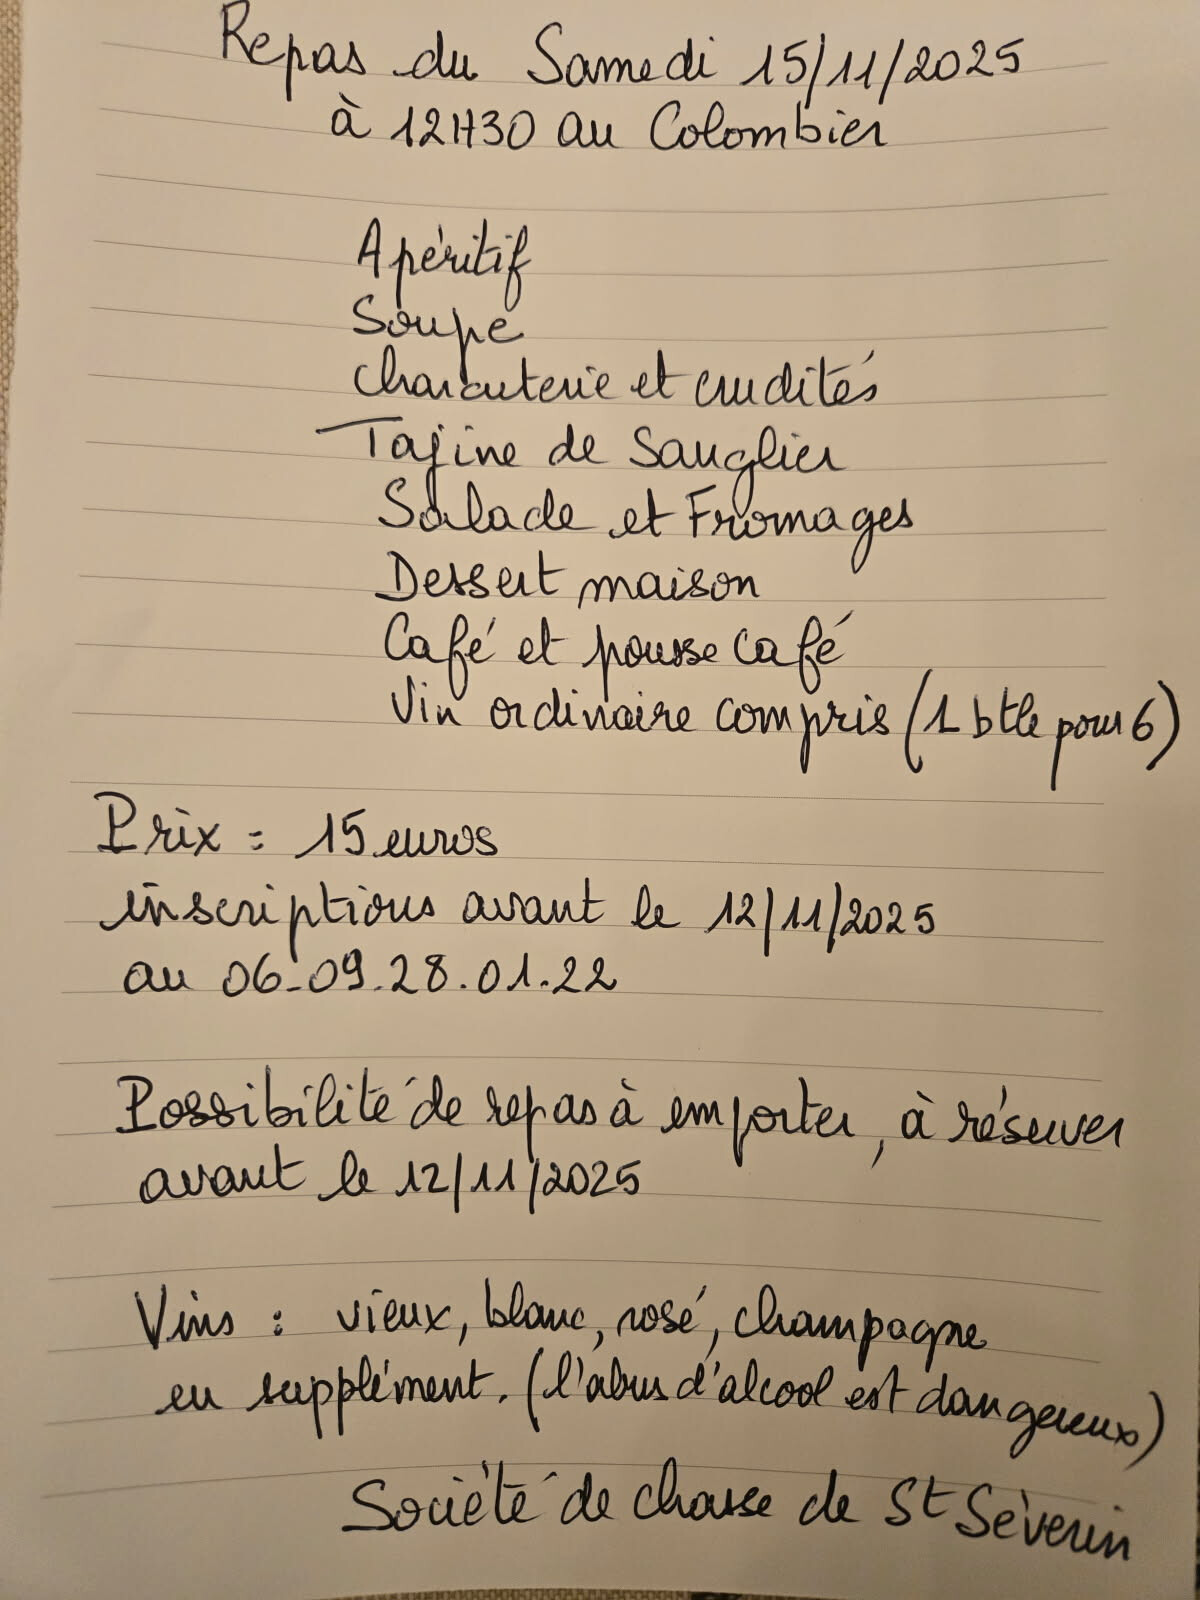 Repas du Samedi 15/11/2025
à 12H30 au Colombier
Apéritif
Soupe
charcuterie et crudités
Tajine de Sanglier
Salade et Fromages
Dessert maison
Café et pousse café
Vin ordinaire compris (1 btle pour 6)
Prix = 15 euros
inscriptions avant le 12/11/2025
au 06-09.28.01.22
Possibilité de repas à emporter, à réserver
avant le 12/11/2025
Vins : vieux, blanc, rosé, champagne
en supplément. (l'abus d'alcool est dangereux)
Société de chasse de St Sèverin